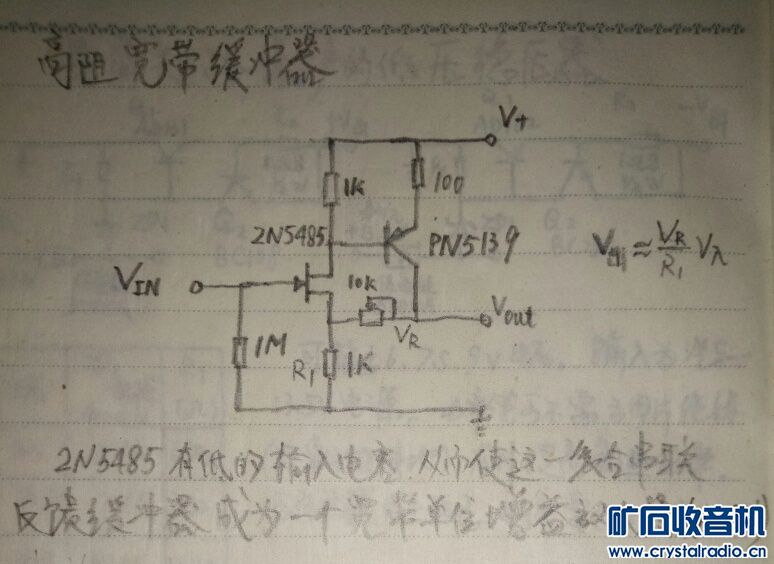 高阻宽带缓冲器
V+
1K
100
2N5485
PN5139
V出≈VR/R1 V入
VIN
10K
VR
Vout
1M
R1
1K
2N5485有低的输入电容.从而使这一复合串联
反馈缓冲器成为一个宽带单位增益
矿石收音机
www.crystalradio.cn